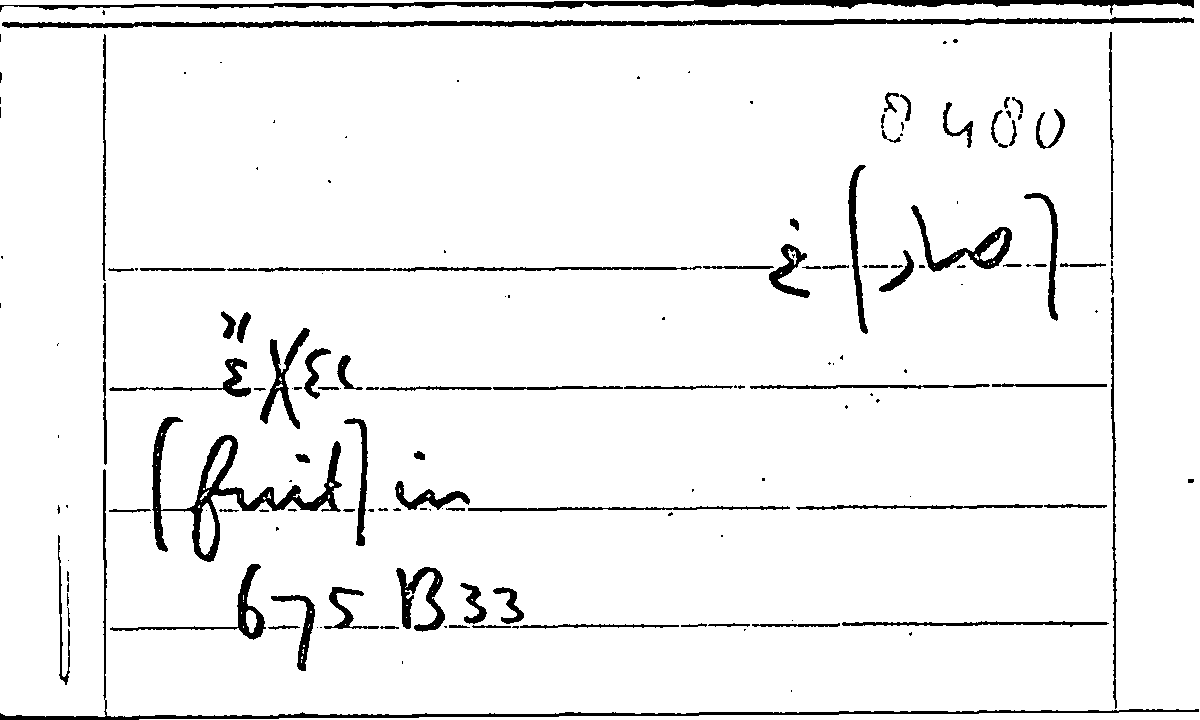 0400
ἔχει
[fruit] in
675 B33